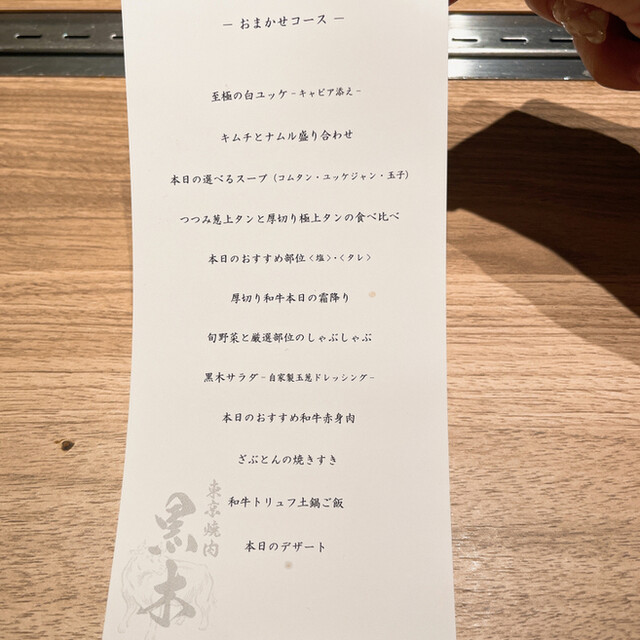 − おまかせコース −
至極の白ユッケ−キャビア添え−
キムチとナムル盛り合わせ
本日の選べるスープ（コムタン・ユッケジャン・玉子）
つつみ葱上タンと厚切り極上タンの食べ比べ
本日のおすすめ部位〈塩〉・〈タレ〉
厚切り和牛本日の霜降り
旬野菜と厳選部位のしゃぶしゃぶ
黒木サラダ−自家製玉葱ドレッシング−
本日のおすすめ和牛赤身肉
ざぶとんの焼きすき
和牛トリュフ土鍋ご飯
本日のデザート
東京焼肉
黒木